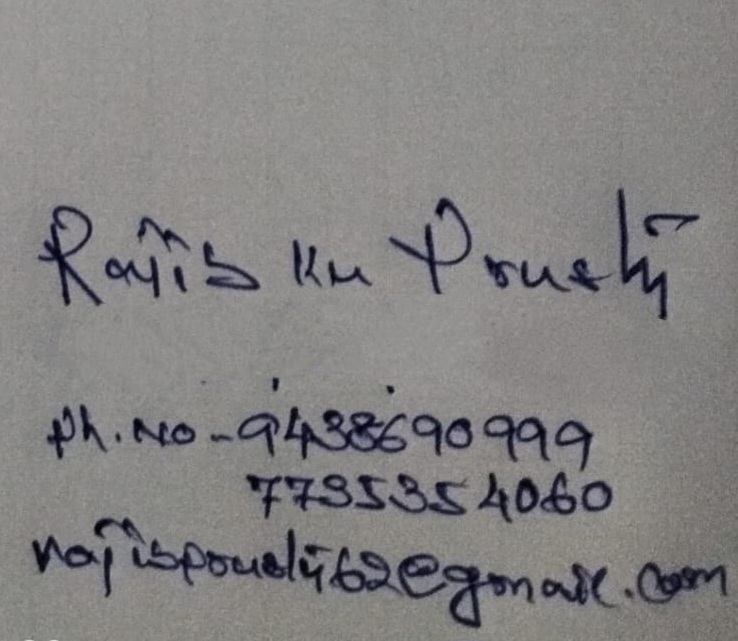 Rajib Ku Prusty
Ph. No - 9438690999
7735354060
rajibprusty62@gmail.com